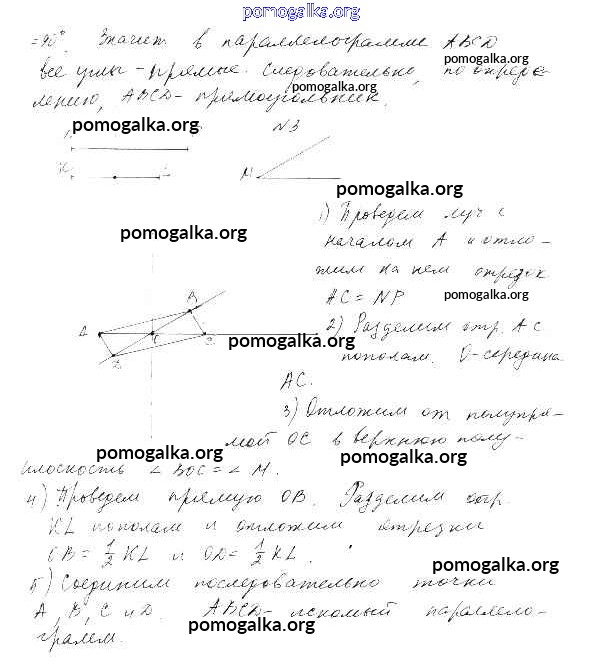 pomogalka.org
=90°. Значит в параллелограмме ABCD
pomogalka.org
все углы - прямые. Следовательно, по опреде-
pomogalka.org
лению, ABCD - прямоугольник.
pomogalka.org
N3
K L
M
pomogalka.org
1) Проведем луч с
pomogalka.org
началом A и отло-
жим на нем отрезок
AC = NP
pomogalka.org
2) Разделим отр. AC
пополам. O - середина
AC.
A B C D
pomogalka.org
3) Отложим от полупря-
мой OC в верхнюю полу-
pomogalka.org
pomogalka.org
плоскость ∠ BOC = ∠ M.
4) Проведем прямую OB. Разделим отр.
KL пополам и отложим отрезки
OB = 1/2 KL и OD = 1/2 KL.
pomogalka.org
5) Соединим последовательно точки
A, B, C и D. ABCD - искомый параллело-
грамм.
pomogalka.org